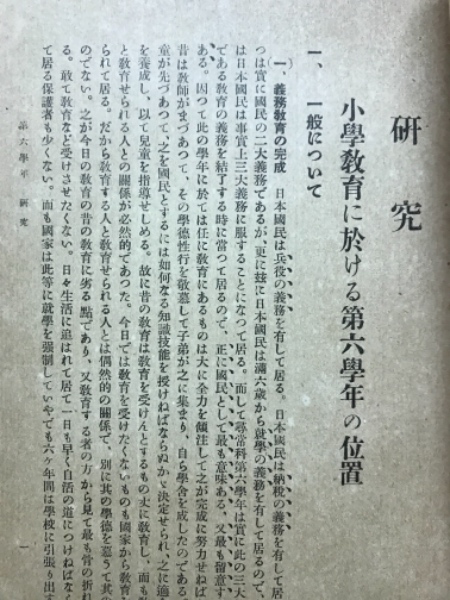 研究
小學敎育に於ける第六學年の位置
一、一般について
(一、義務敎育の完成 日本國民は兵役の義務を有して居る。日本國民は納稅の義務を有して居
つは實に國民の二大義務であるが、更に玆に日本國民は滿六歲から就學の義務を有して居るので、
は日本國民は事實上三大義務に服することになつて居る。而して尋常科第六學年は實に此の三大
である敎育の義務を結了する時に當つて居るので、正に國民として最も意味ある、又最も留意す
ある。因つて此の學年に於ては任に敎育にあるものは大に全力を傾注して之が完成に努力せねば
昔は敎師がまづあつて、その學德性行を敬慕して子弟が之に集まり、自ら學舍を成したのである
童が先づあつて、之を國民とするには如何なる知識技能を授けねばならぬかゞ決定せられ、之に適
を養成し、以て兒童を指導せしめる。故に昔の敎育は敎育を受けんとするもの丈に敎育し、而も
と敎育せられる人との關係が必然的であつた。今日では敎育を受けたくないものも國家から敎育
られて居る。だから敎育する人と敎育せられる人とは偶然的の關係で、別に其の學德を慕うて其
のでない。之が今日の敎育の昔の敎育に劣る點であり、又敎育する者の方から見て最も骨の折れ
る。敢て敎育など受けさせたくない。日々生活に追はれて居て一日も早く自活の道につけねばな
て居る保護者も少くない。而も國家は此等に就學を强制していやでも六ケ年間は學校に引張り出
第六學年 硏究
一